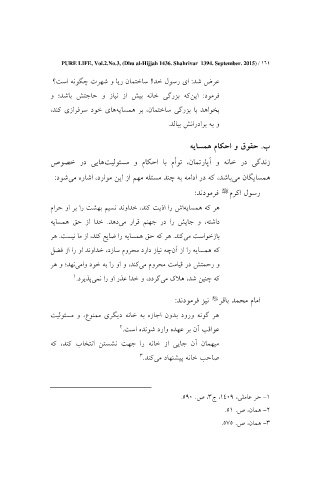 PURE LIFE, Vol.2.No.3, (Dhu al-Hijjah 1436. Shahrivar 1394, September. 2015) / ١٦٨
عرض شد: ای رسول خدا! ساختمان ریا و شهرت چگونه است؟
فرمود: این‌که بزرگی خانه بیش از نیاز و حاجتش باشد؛ و
بخواهد با بزرگی ساختمان، بر همسایه‌های خود سرفرازی کند،
و به برادرانش ببالد.
ب. حقوق و احکام همسایه
زندگی در خانه و آپارتمان، توأم با احکام و مسئولیت‌هایی در خصوص
همسایگان می‌باشد، که در ادامه به چند مسئله مهم از این موارد، اشاره می‌شود:
رسول اکرم ﷺ فرمودند:
هر که همسایه‌اش را اذیت کند، خداوند نسیم بهشت را بر او حرام
داشته، و جایش را در جهنم قرار می‌دهد. خدا از حق همسایه
بازخواست می‌کند. هر که حق همسایه را ضایع کند، از ما نیست. هر
که همسایه را از آن‌چه نیاز دارد محروم سازد، خداوند او را از فضل
و رحمتش در قیامت محروم می‌کند، و او را به خود وامی‌نهد؛ و هر
که چنین شد، هلاک می‌گردد، و خدا عذر او را نمی‌پذیرد.¹
امام محمد باقر نیز فرمودند:
هر گونه ورود بدون اجازه به خانه دیگری ممنوع، و مسئولیت
عواقب آن بر عهده وارد شونده است.²
میهمان آن جایی از خانه را جهت نشستن انتخاب کند، که
صاحب خانه پیشنهاد می‌کند.³
١- حر عاملی، ١٤٠٩، ج٣، ص. ٥٩٠.
٢- همان، ص. ٥١.
٣- همان، ص. ٥٧٥.